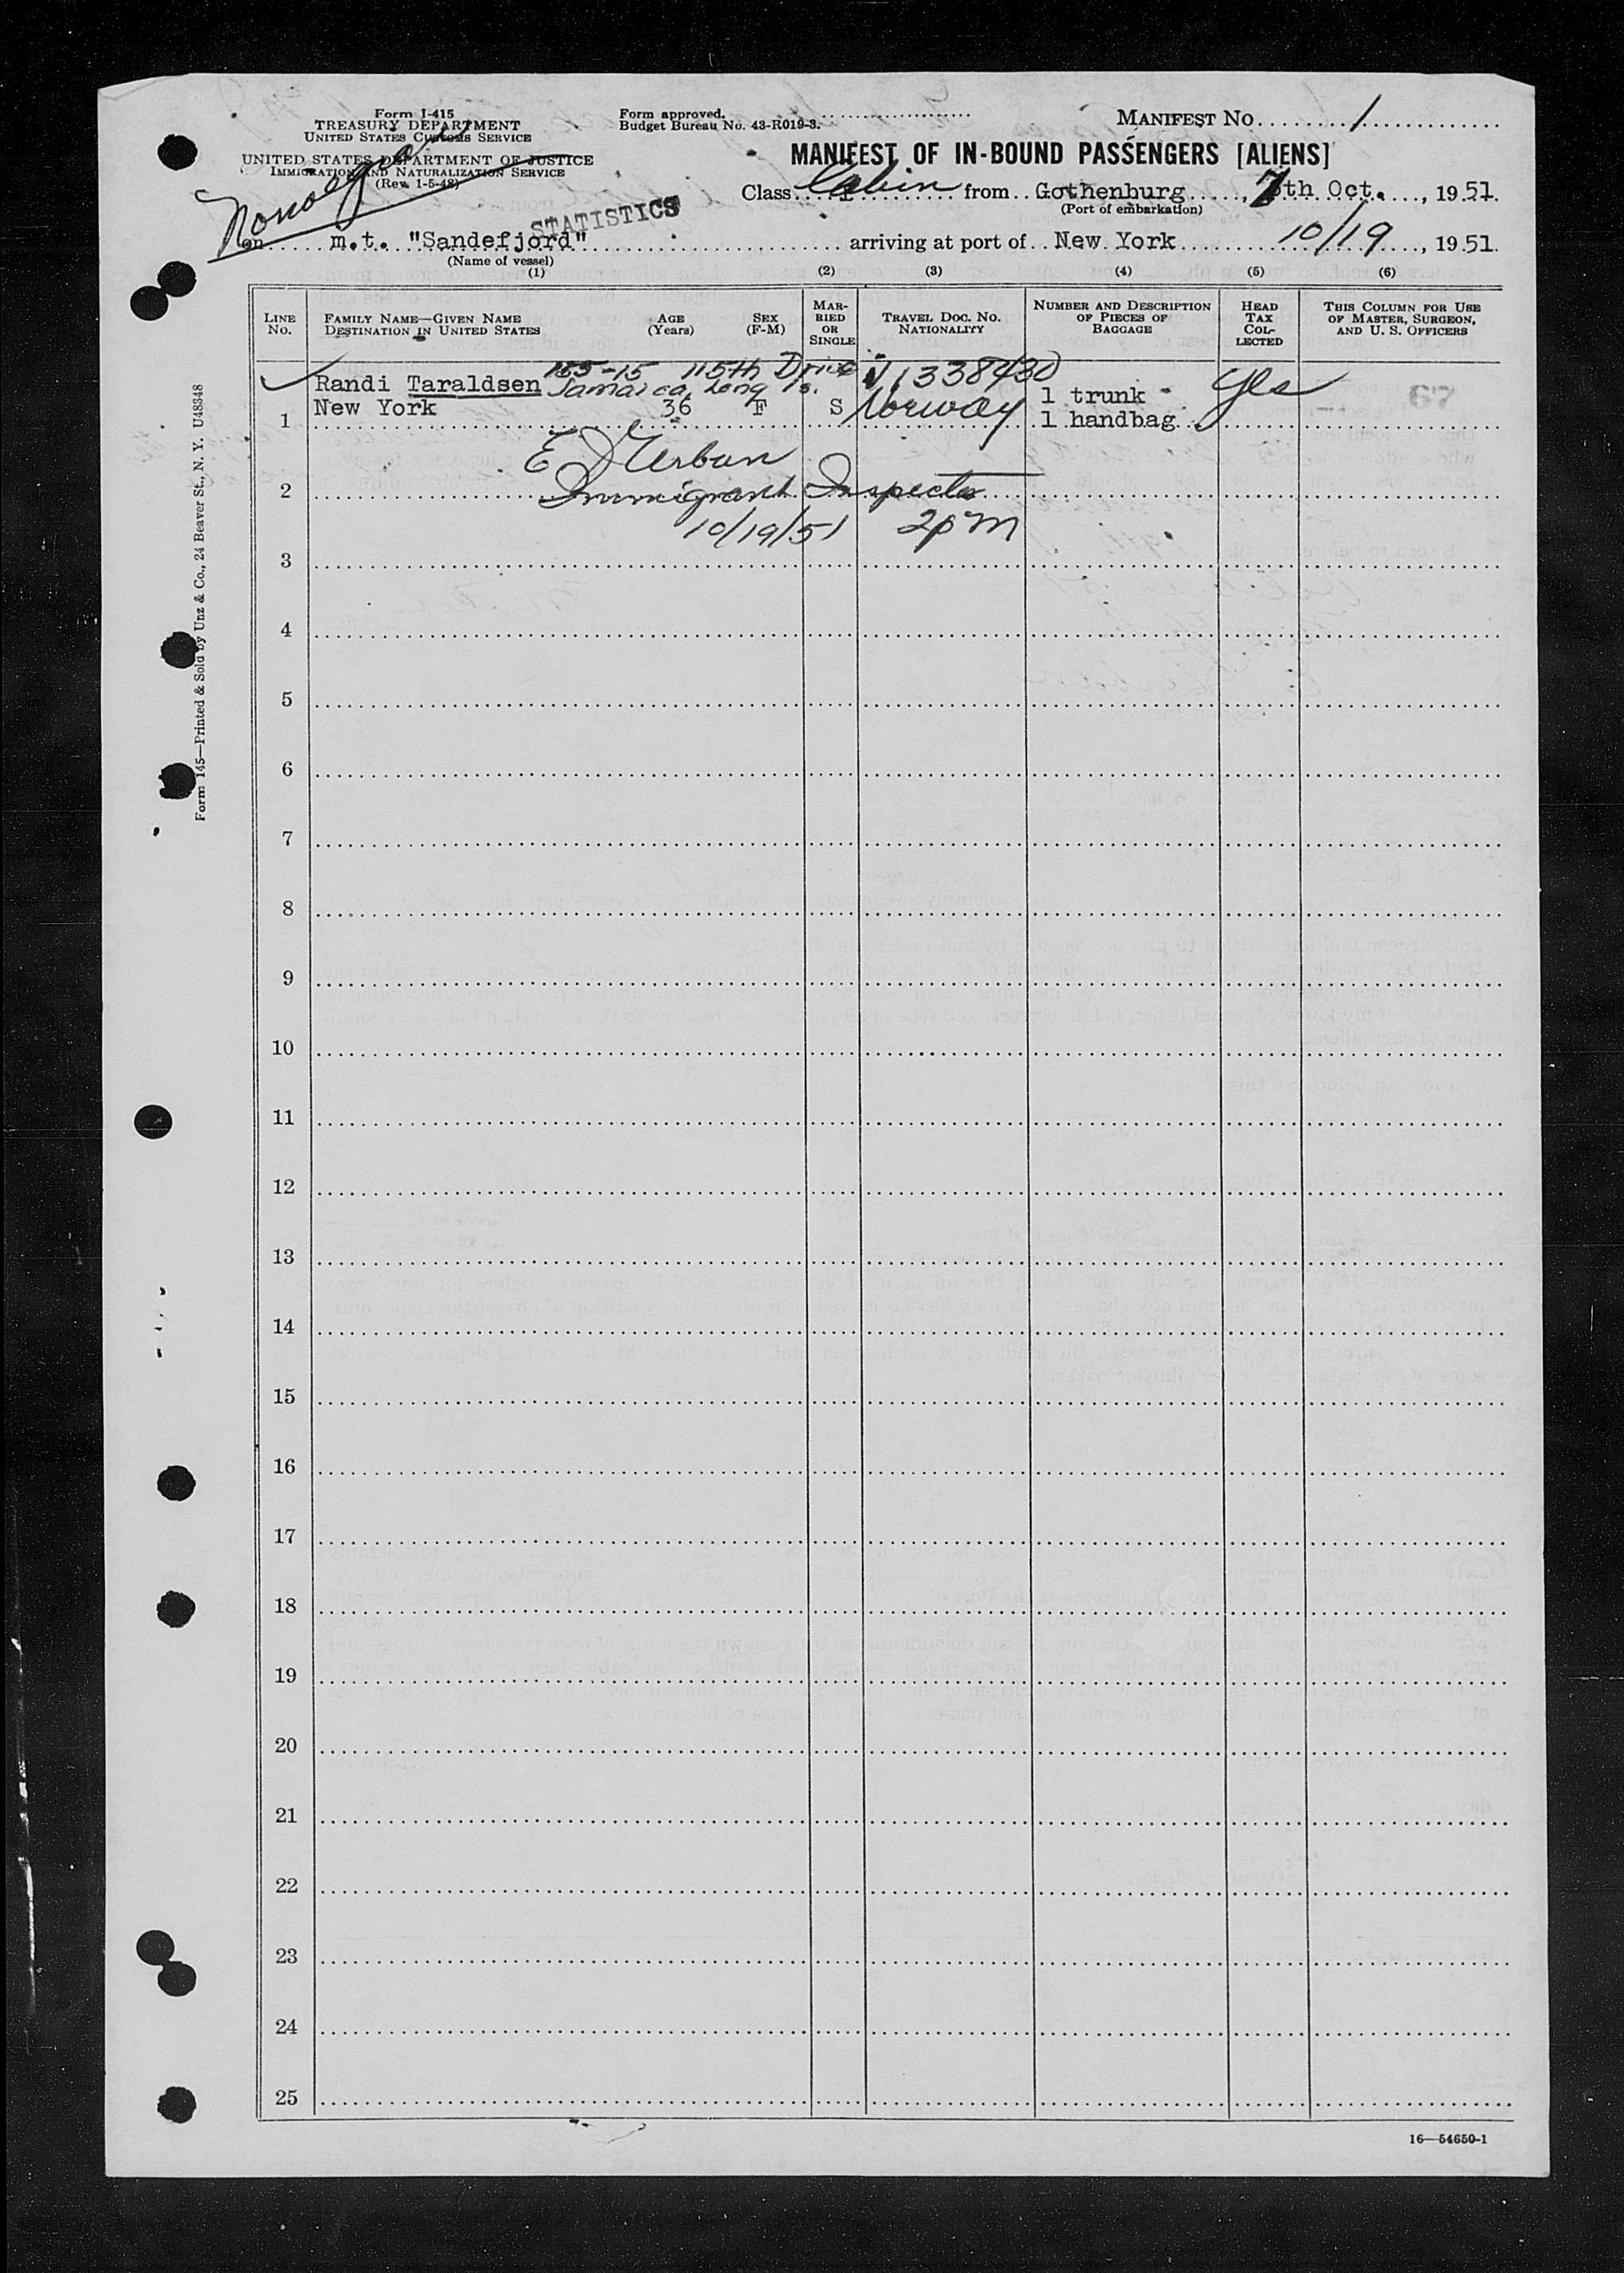 Form I-415
TREASURY DEPARTMENT
UNITED STATES CUSTOMS SERVICE
UNITED STATES DEPARTMENT OF JUSTICE
IMMIGRATION AND NATURALIZATION SERVICE
(Rev. 1-5-48)
Form approved.
Budget Bureau No. 43-R019-3.
STATISTICS
MANIFEST NO. 1
MANIFEST OF IN-BOUND PASSENGERS [ALIENS]
Class Cabin from Gothenburg, 7th Oct., 1951.
(Port of embarkation)
on m.t. "Sandefjord" arriving at port of New York 10/19, 1951.
(Name of vessel)
(1) (2) (3) (4) (5) (6)
LINE No.
FAMILY NAME—GIVEN NAME
DESTINATION IN UNITED STATES
AGE (Years)
SEX (F-M)
MARRIED OR SINGLE
TRAVEL DOC. NO.
NATIONALITY
NUMBER AND DESCRIPTION OF PIECES OF BAGGAGE
HEAD TAX COLLECTED
THIS COLUMN FOR USE OF MASTER, SURGEON, AND U. S. OFFICERS
155-15 115th Drive V 1338430
Randi Taraldsen Jamaica, Long Is. 1 trunk Yes
1 New York 36 F S Norway 1 handbag
E D Urban
2 Immigrant Inspector
10/19/51 2pm
3
4
5
6
7
8
9
10
11
12
13
14
15
16
17
18
19
20
21
22
23
24
25
Form 145—Printed & Sold by Unz & Co., 24 Beaver St., N. Y. U48348
16—54650-1